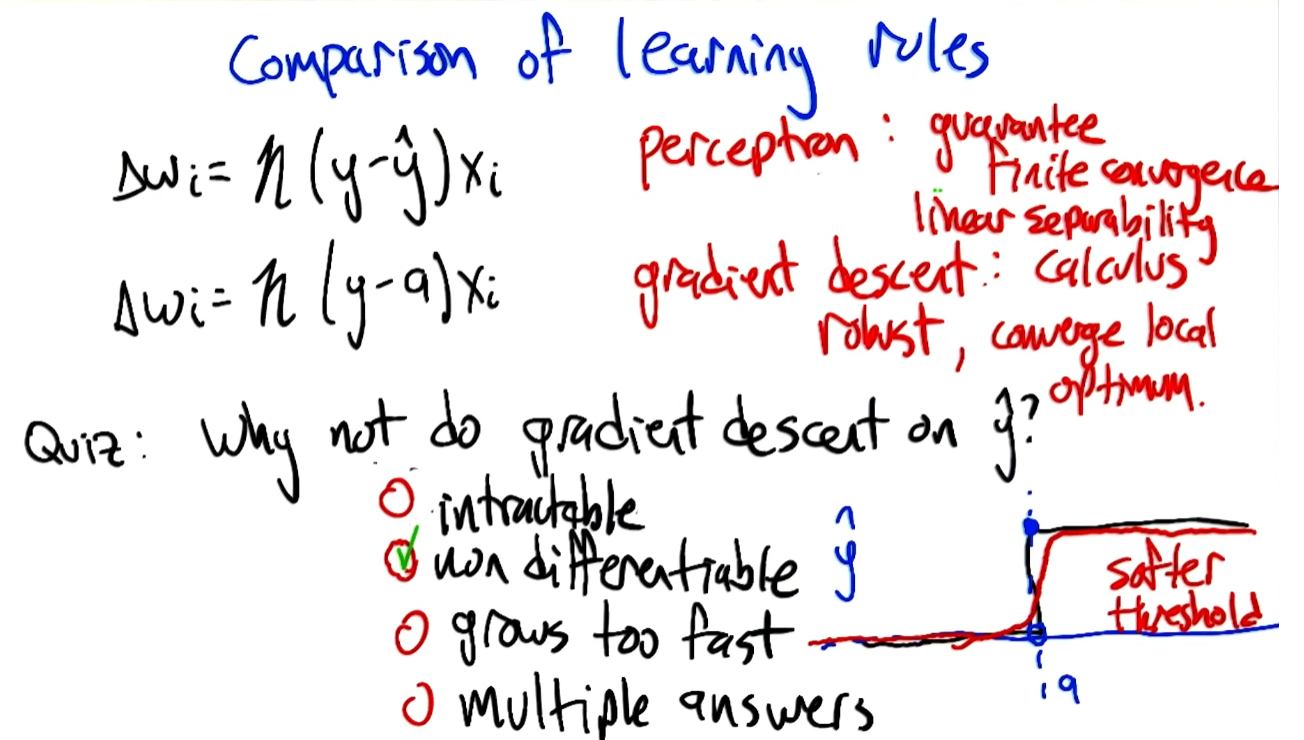 Comparison of learning rules
Δwi = η(y-ŷ)xi
perceptron: guarantee
finite convergence
linear separability
Δwi = η(y-a)xi
gradient descent: calculus
robust, converge local
optimum.
Quiz: Why not do gradient descent on ŷ?
intractable
non differentiable
grows too fast
multiple answers
ŷ
softer
threshold
a